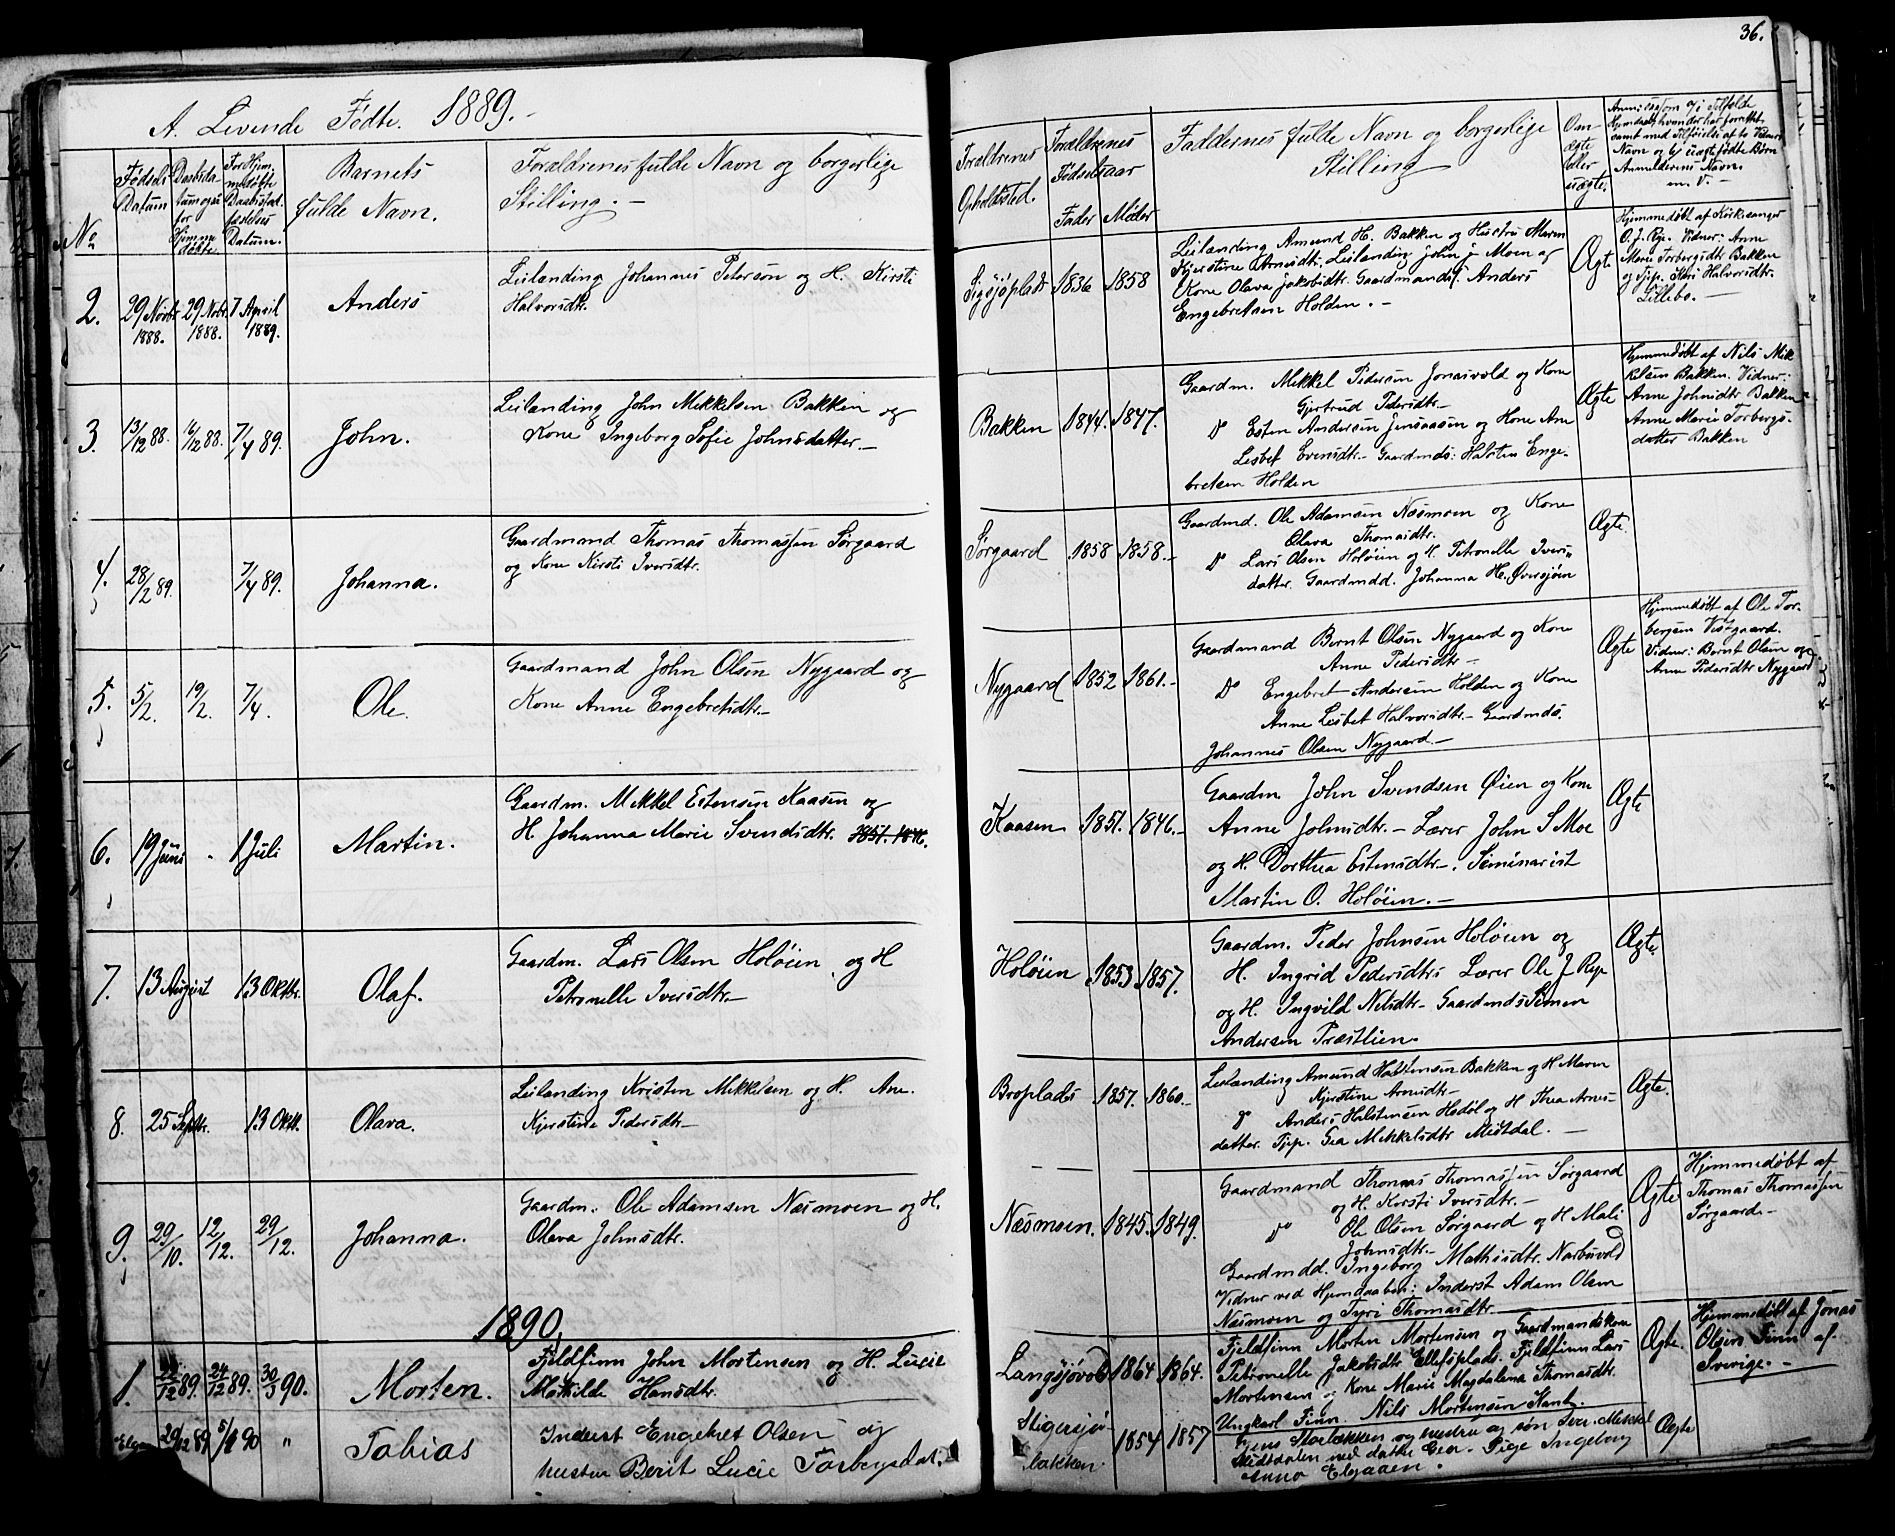 36.
A. Levende Fødte. 1889.-
No
Fødsels
Datum
for
Hjemme
døbte
For Hjem
medøbte
Daabsstad
fæstelses
Datum.
Barnets
fulde Navn.
Forældrenes fulde Navn og borgerlige
Stilling. -
Forældrenes
Opholdsted.
Forældrenes
Fødselsaar
Fader Moder
Faddernes fulde Navn og borgerlige
Stilling
Om
Ægte
eller
uægte.
samt med Tilføielse af to Vidners
Navn og b) uægtefødte Børn
Anmelderens Navn.
m. V. -
2.
29 Novbr
1888.
29 Nobr
1888.
7 April
1889.
Anders
Leilænding Johannes Peterson og H. Kirsti
Halvorsdtr.
Sigsjøplads 1836 1858
Leilænding Amund H. Bakken og Hustru Maren
Kjerstine Arnesdtr. Leilænding John J. Moen og
Kone Olava Jakobsdtr. Gaardmands. Anders
Engebretsen Holden. -
Ægte
Hjemmedøbt af Kirkesanger
O. J. Rye. Vidner: Anne
Marie Torbergsdtr Bakken
og Pige. Kari Halvorsdtr.
Lillebo. -
3.
13/12 88. 16/12 88. 7/4 89.
John.
Leilænding John Mikkelsen Bakken og
Kone Ingeborg Sofie Johnsdatter. -
Bakken 1844. 1847.
Gaardm. Mikkel Pedersen Jonasvold og Kone
Gjertrud Pedersdtr. -
Do Esten Andersen Jensaasen og Kone Ane
Lisbet Evensdtr. - Gaardmds: Halsten Enge-
bretsen Holden
Ægte
Hjemmedøbt af Nils Mik
kelsen Bakken. Vidner:
Anne Johnsdtr Bakken
Anne Marie Torbergs-
datter Bakken
4.
28/2 89. 7/4 89.
Johanna.
Gaardmand Thomas Thomassen Sørgaard
og Kone Kirsti Iversdtr.
Sørgaard 1858 1858. -
Gaardmd. Ole Adamsen Næsmoen og Kone
Olava Thomasdtr.
Do Lars Olsen Holøien og H. Petronelle Ivers-
datter. Gaardmdd. Johanna H. Øversjøen
Ægte.
5.
5/2. 19/2. 7/4.
Ole.
Gaardmand John Olsen Nygaard og
Kone Anne Engebretsdtr. -
Nygaard 1852 1861. -
Gaardmand Bernt Olsen Nygaard og Kone
Anne Pedersdtr -
Do Engebret Andersen Holden og Kone
Anne Lisbet Halvorsdtr. - Gaardmds.
Johannes Olsen Nygaard. -
Ægte
Hjemmedøbt af Ole Tor-
bergsen Vestgaard.
Vidner: Bernt Olsen og
Anne Pedersdtr Nygaard
6.
19 Juni - 1 Juli
Martin.
Gaardm. Mikkel Estensen Kaasen og
H. Johanna Marie Svendsdtr. 1851. 1846.
Kaasen 1851. 1846. -
Gaardm John Svendsen Øien og Kone
Anne Johnsdtr. - Lærer John S Moe
og H. Dorthea Estensdtr -. Seminarist
Martin O. Holøien. -
Ægte
7.
13 August 13 Oktbr.
Olaf.
Gaardm. Lars Olsen Holøien og H
Petronelle Iversdtr. -
Holøien 1853 1857.
Gaardm. Peder Johnsen Holøien og
H. Ingrid Pedersdtr Lærer Ole J Rye
og H. Ingvild Nilsdtr - Gaardmds Simen
Andersen Præstlien.
Ægte.
8.
25 Septbr. 13 Oktb.
Olava.
Leilænding Kristen Mikkelsen og H. Ane.
Kjerstine Pedersdtr. -
Broplads 1857. 1860. -
Leilænding Amund Halstensen Bakken og H Maren
Kjerstine Arnesdtr -
Do Anders Halstensen Hodøl og H Thea Arnes-
datter. Pige. Gea Mikkelsdtr Mistdal. -
Ægte.
9.
29/10. 12/12. 29/12.
Johanna.
Gaardm. Ole Adamsen Næsmoen og H.
Olava Johnsdtr.
Næsmoen. 1845. 1849.
Gaardmand Thomas Thomassen Sørgaard
og H. Kirsti Iversdtr. -
Do Ole Olsen Sørgaard og H Mali
Johnsdtr. -
Gaardmdd. Ingeborg Mathisdtr. Narbuvold
Vidner ved Hjemdaaben: Inderst Adam Olsen
Næsmoen og Tyri Thomasdtr
Ægte
Hjemmedøbt af
Thomas Thomassen
Sørgaard. -
1890.
1.
22/12 89. 24/12 89. 30/3 90.
Morten.
Fjeldfinn John Mortensen og H. Lucie
Mathilde Hansdtr.
Langsjøvold 1864 1864.
Fjeldfinn Morten Mortensen og Gaardmandskone
Petronelle Jakobsdtr Ellefsplads. Fjeldfinn Lars
Mortensen og Kone Marie Magdalena Thomasdtr.
Ungkarl Finn. Nils Mortensen
Ægte.
Hjemmedøbt af Jonas
Olsen Finn af
Sverige. -
29/12 89 90 "
Tobias
Inderst Engebret Olsen og
hustru Berit Lucie Torbergsdat.
Stigersjø-
bakken. 1854 1857
Jens Storbækken og hustru og søn Iver. Mikkel
Mistdalen med datter Gea. Pige Ingeborg
Anna Elgaaen.
Ægte